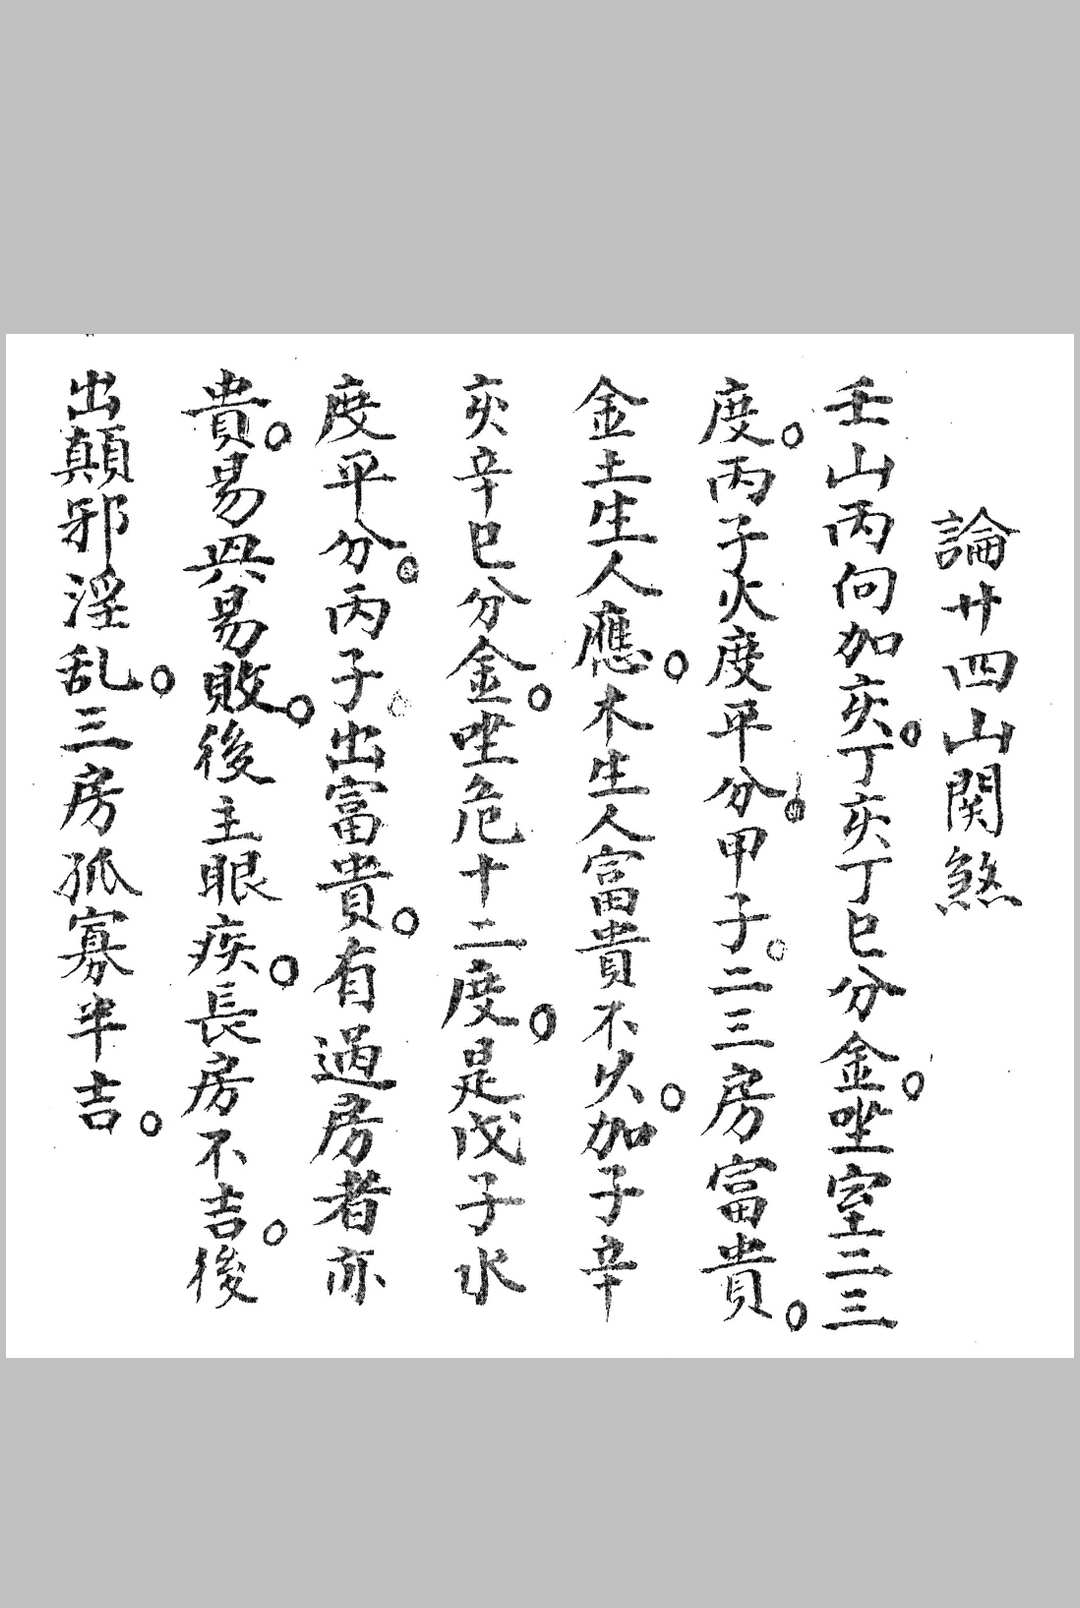 論廿四山関煞
壬山丙向加亥。丁亥丁巳分金。坐室二三
度。丙子火度平分。甲子。二三房富貴。
金土生人應。木生人富貴不久。加子辛
亥辛巳分金。坐危十二度。是戊子水
度平分。丙子。出富貴。有過房者亦
貴。易興易敗。後主眼疾。長房不吉。後
出顛邪淫乱。三房孤寡半吉。